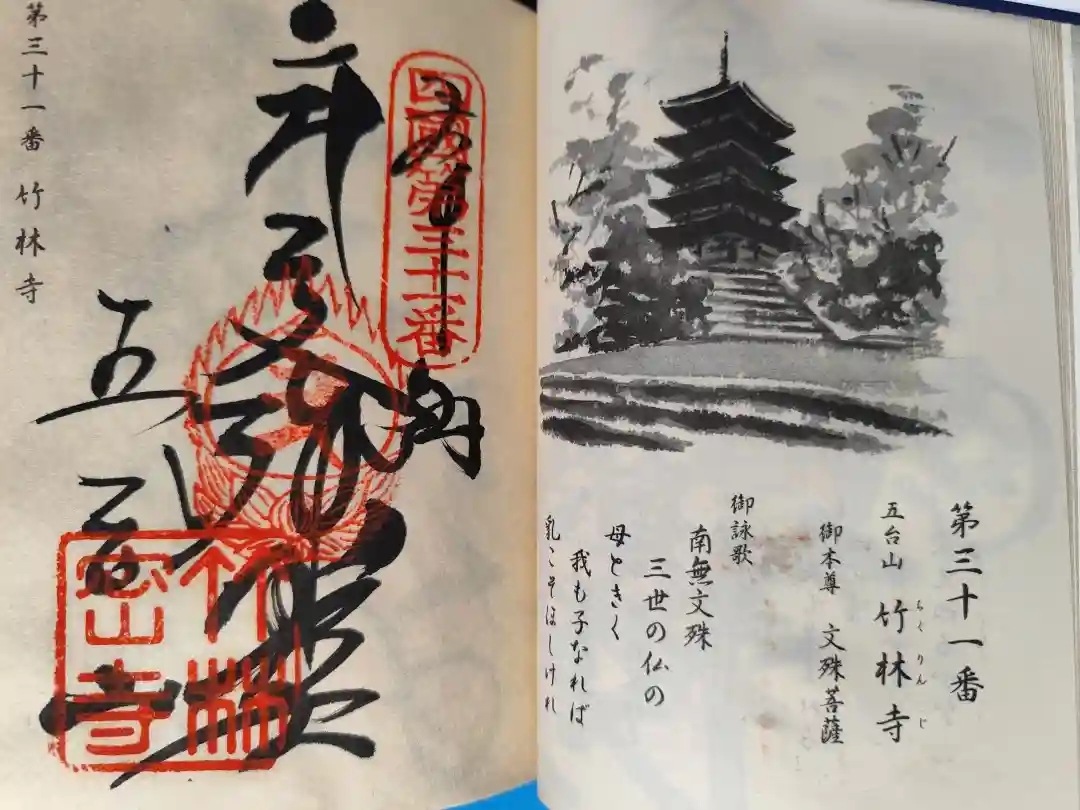 第三十一番
五台山 竹林寺
ちくりんじ
御本尊 文殊菩薩
御詠歌
南無文殊
三世の仏の
母ときく
我も子なれば
乳こそほしけれ
四國第三十一番
竹林
密寺
五台山
第三十一番 竹林寺